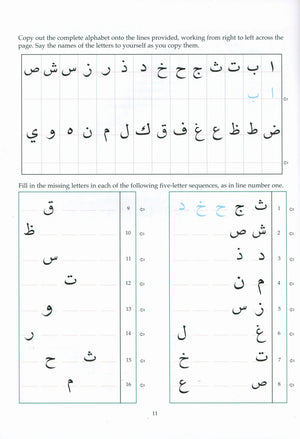 Copy out the complete alphabet onto the lines provided, working from right to left across the
page. Say the names of the letters to yourself as you copy them.
ا ب ت ث ج ح خ د ذ ر ز س ش ص
ا ب
ض ط ظ ع غ ف ق ك ل م ن ه و ي
Fill in the missing letters in each of the following five-letter sequences, as in line number one.
1 ث ج ح خ د
2 ش ص
3 د ذ
4 م ن
5 ز س
6 غ ل
7 ت خ
8 ص ع
9 ق
10 ظ
11 س
12 ت
13 و
14 ر
15 ث ح
16 م
11